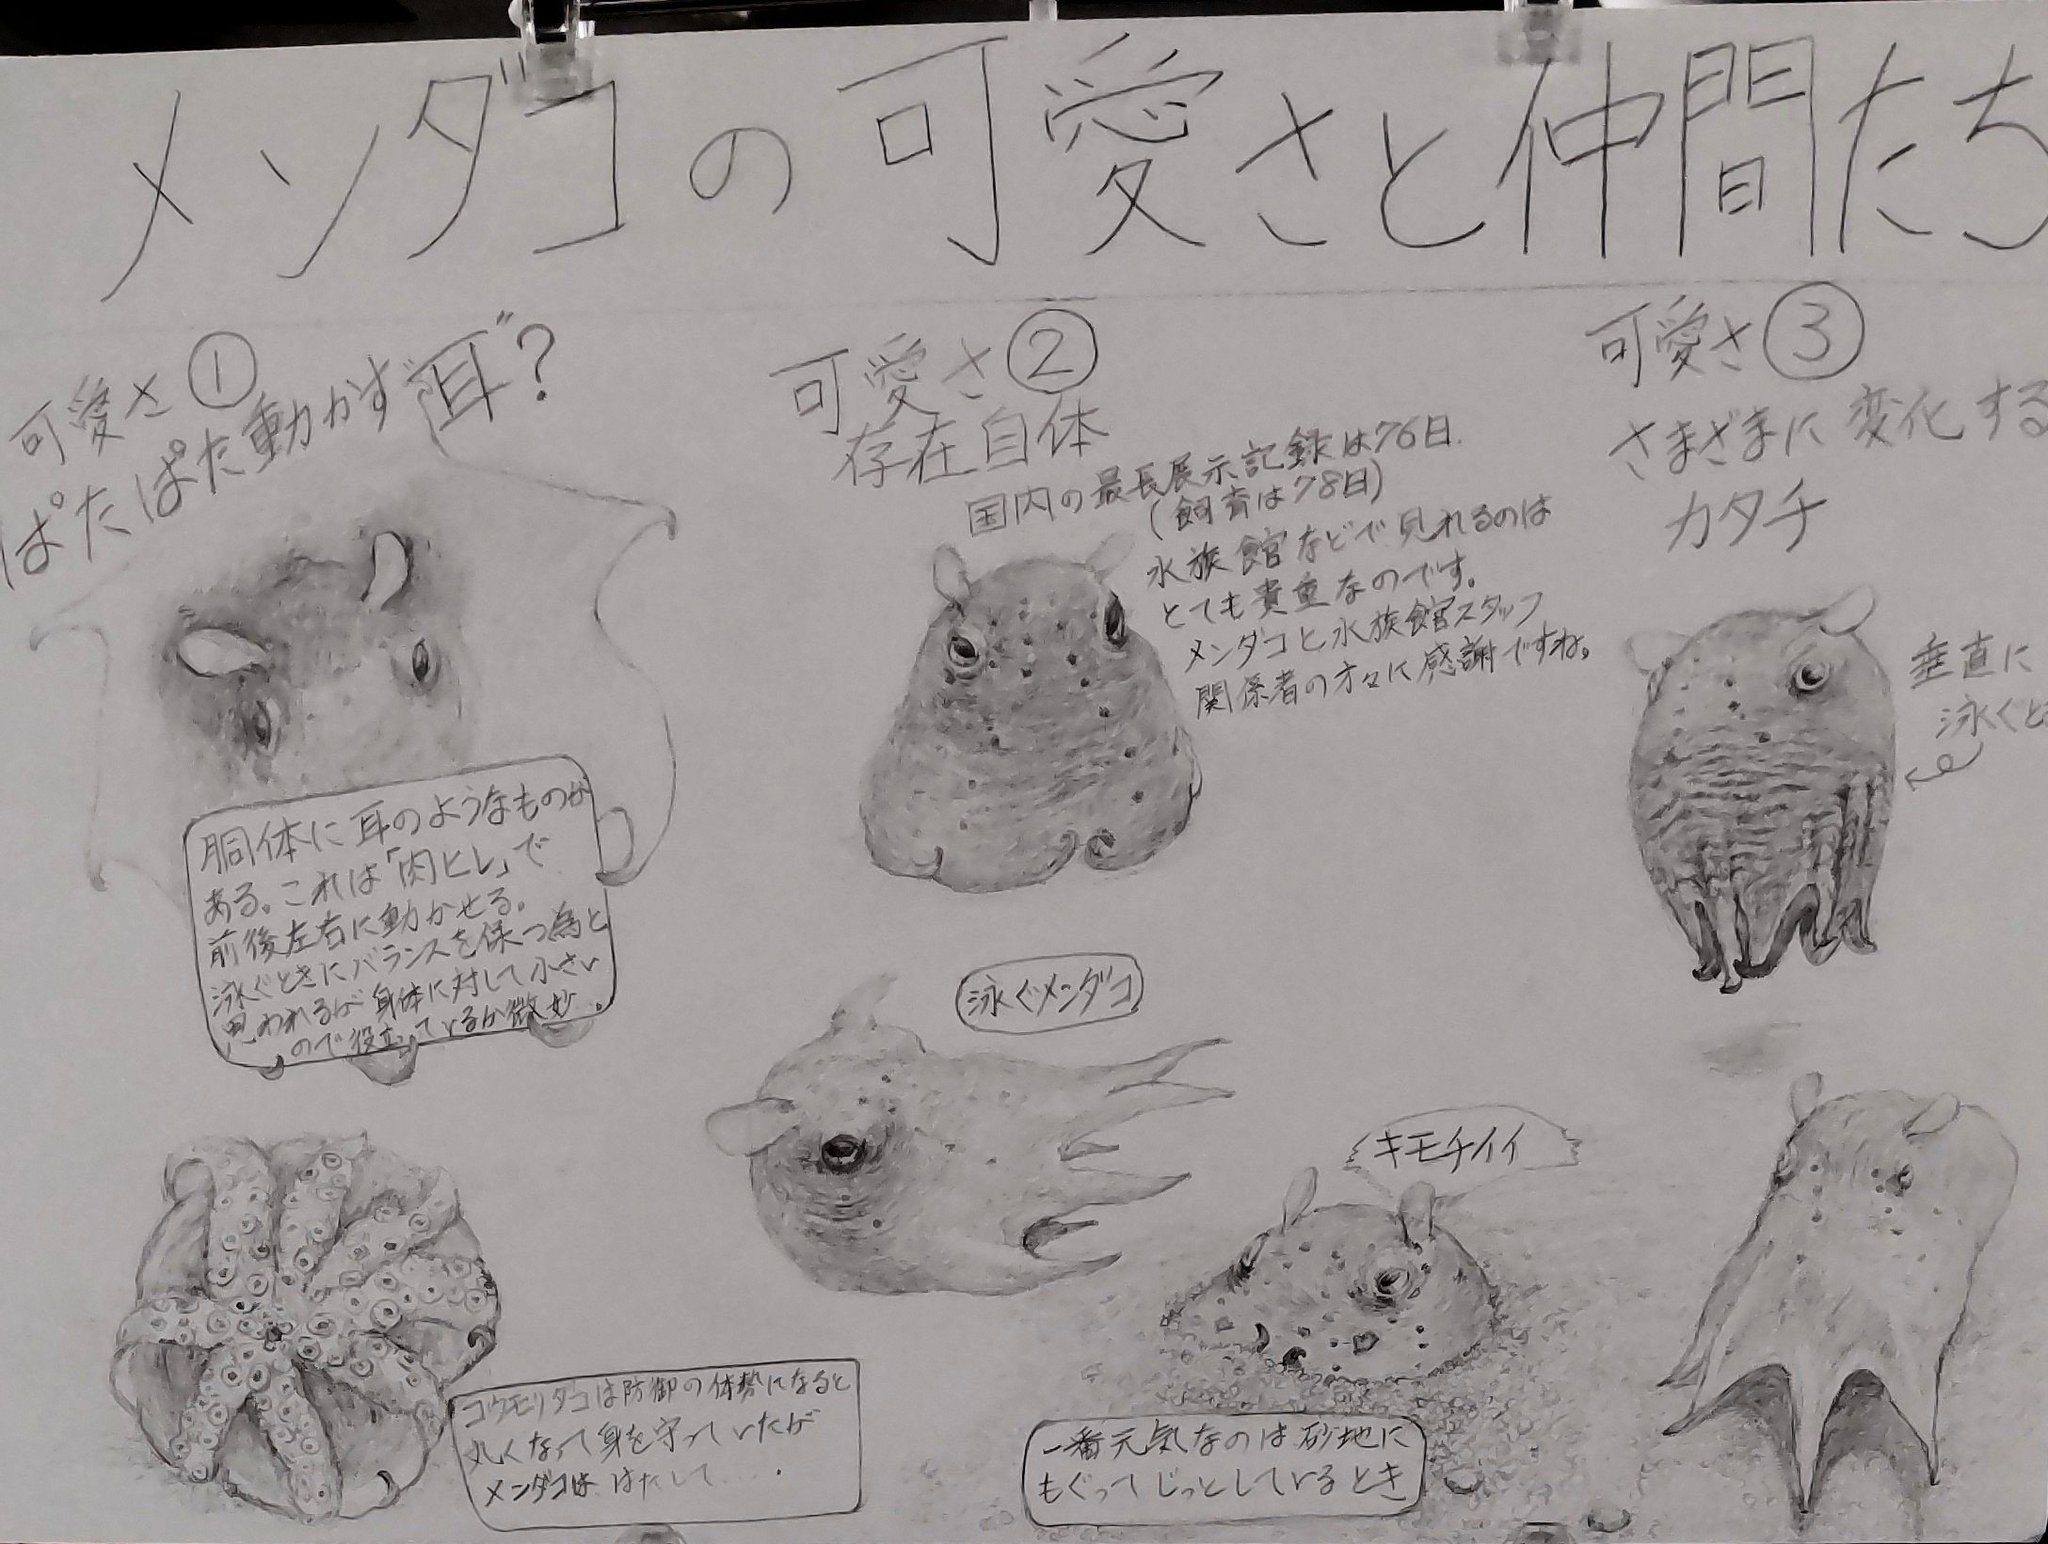 メンダコの可愛さと仲間たち
可愛さ①
ぱたぱた動かす"耳"?
胴体に耳のようなものが
ある。これは「肉ヒレ」で
前後左右に動かせる。
泳ぐときにバランスを保つ為と
思われるが身体に対して小さい
ので役立っているか微妙。
可愛さ②
存在自体
国内の最長展示記録は76日.
(飼育は78日)
水族館などで見れるのは
とても貴重なのです。
メンダコと水族館スタッフ
関係者の方々に感謝ですね。
可愛さ③
さまざまに変化する
カタチ
垂直に
泳ぐと
泳ぐメンダコ
キモチイイ
コウモリダコは防御の体勢になると
丸くなって身を守っていたが
メンダコは はたして....
一番元気なのは砂地に
もぐってじっとしているとき